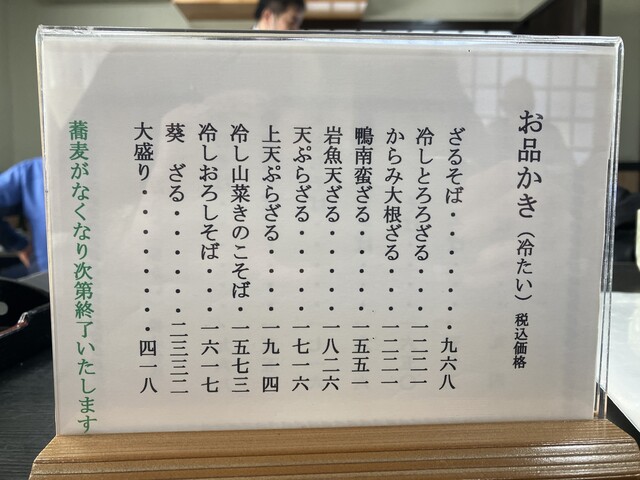 お品かき（冷たい）税込価格
ざるそば・・・・・・九六八
冷しとろろざる・・・一二二一
からみ大根ざる・・・一二二一
鴨南蛮ざる・・・・・一五五一
岩魚天ざる・・・・・一八二六
天ぷらざる・・・・・一七一六
上天ぷらざる・・・・一九一四
冷し山菜きのこそば・一五七三
冷しおろしそば・・・一六一七
葵　ざる・・・・・・二三三二
大盛り・・・・・・・・四一八
蕎麦がなくなり次第終了いたします